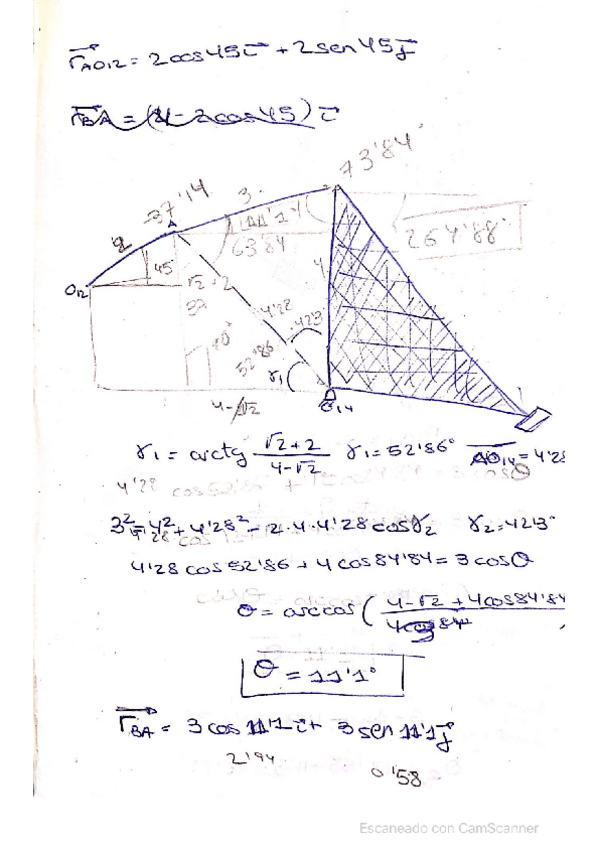 r⃗AO12 = 2cos45 i⃗ + 2sen45 j⃗
r⃗BA = (4-2cos45) i⃗
73'84°
37'14
3
11'1
63'84
264'88°
2
45
O12
√2+2
4
4'28
42'3
52'86
γ1
4-√2
O14
γ1 = arctg (√2+2)/(4-√2) γ1 = 52'86° AO14 = 4'28
3² = 4² + 4'28² - 2·4·4'28 cosγ2 γ2 = 42'3°
4'28 cos 52'86 + 4 cos 84'84 = 3 cosθ
θ = arccos ( 4-√2 + 4cos84'84
θ = 11'1°
r⃗BA = 3 cos 11'1 i⃗ + 3 sen 11'1 j⃗
2'94
0'58
Escaneado con CamScanner